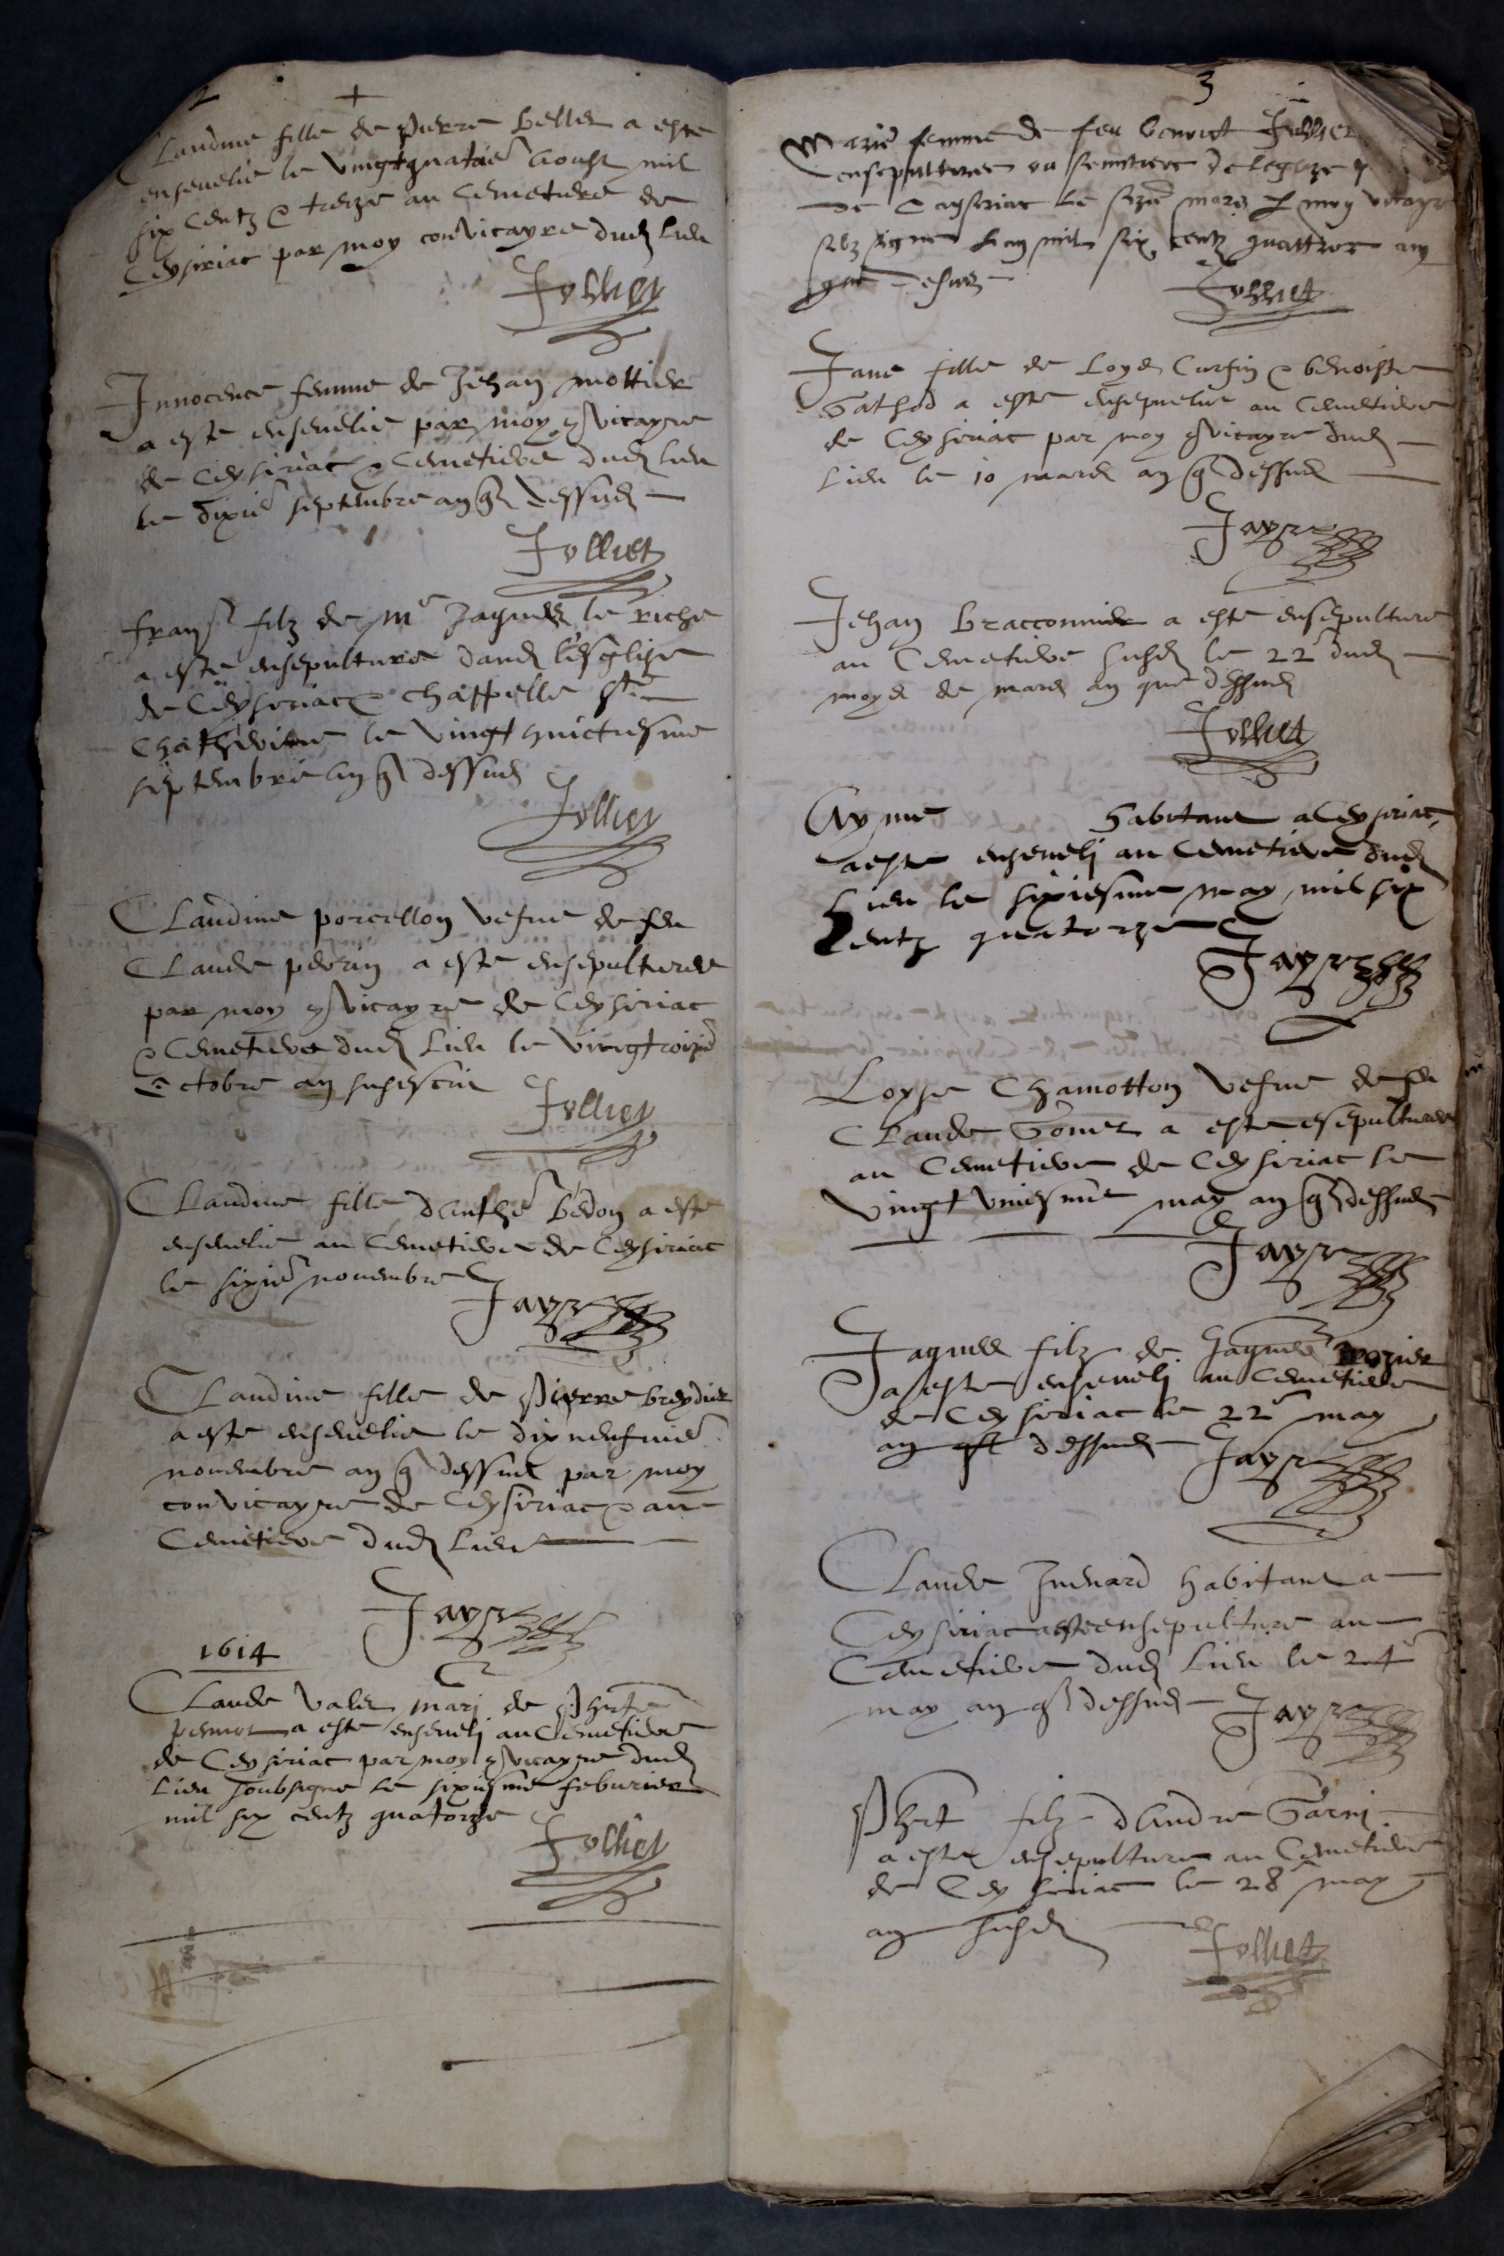 2
+
Claudine fille de pierre bellet a este
ensevelie le vingtquatrie aoust mil
six centz & treize au cemetiere de
Ceysiriac par moy convicayre dud lieu
Jolliet
Innocence femme de Jehan mottier
a este ensevelie par moy 9vicayre
de Ceysiriac & cemetiere dud lieu
le dixie septembre an q dessus
Jolliet
frans filz de me Jaques le riche
a este ensepulture dans lesglize
de Ceysiriac & chappelle ste
Chatherine le vingt huictiesme
septembre an q dessus
Jolliet
Claudine porcellon vefve de feu
Claude perrin a este ensepulturee
par moy 9vicayre de Ceysiriac
& cemetiere dud lieu le vingtroizie
octobre an susescrit
Jolliet
Claudine fille danthe bedon a este
ensevelie au cemetiere de Ceysiriac
le sixie novembre
Jayr
Claudine fille de pierre breydier
a este ensevelie le dixneufvie
novembre an q dessus par moy
convicayre de Ceysiriac & au
Cemetiere dud lieu
Jayr
1614
Claude valet mari de phte
pernot a este enseveli au cemetiere
de Ceysiriac par moy 9vicayre dud
lieu soubsigne le sixiesme feburier
mil six centz quatorze
Jolliet
3
Marie femme de feu benoist
ensepulturee au semetiere de leglize
de Cayseriac le mars p moy vicayre
sobz signe lan mil six centz quattroz an
que desus
Jolliet
Jane fille de Loys Cursin & benoiste
Gathod a este ensepvelie au cemetiere
de Ceysiriac par moy 9vicayre dud
lieu le 10 mars an q dessus
Jayr
Jehan Bracconnier a este ensepulture
au Cemetiere susd le 22e dud
moys de mars an que dessus
Jolliet
Ayme habitant a Ceysiriac
a este enseveli au cemetiere dud
lieu le sixiesme may mil six
centz quatorze
Jayr
Loyse Chamotton vefve de feu
Claude Gonet a este esepulturee
au cemetiere de Ceysiriac le
vingt uniesme may an q dessus
Jayr
Jaques filz de Jaques
a este enseveli au Cemetiere
de Ceysiriac le 22e may
an dessus
Jayr
Claude Juenard habitant a
Ceysiriac a este ensepulture au
Cemetiere dud lieu le 24e
may an q dessus
Jayr
Phit filz dAndre Garni
a este ensepulture au Cemetiere
de Ceysiriac le 28e may
an susd
Jolliet